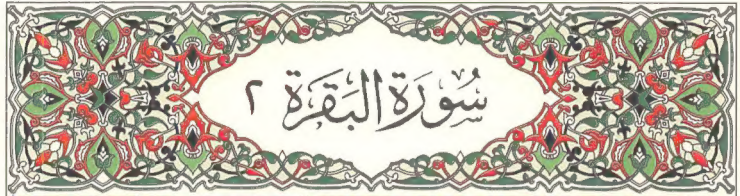 سُورَةُ البَقَرَةِ ٢